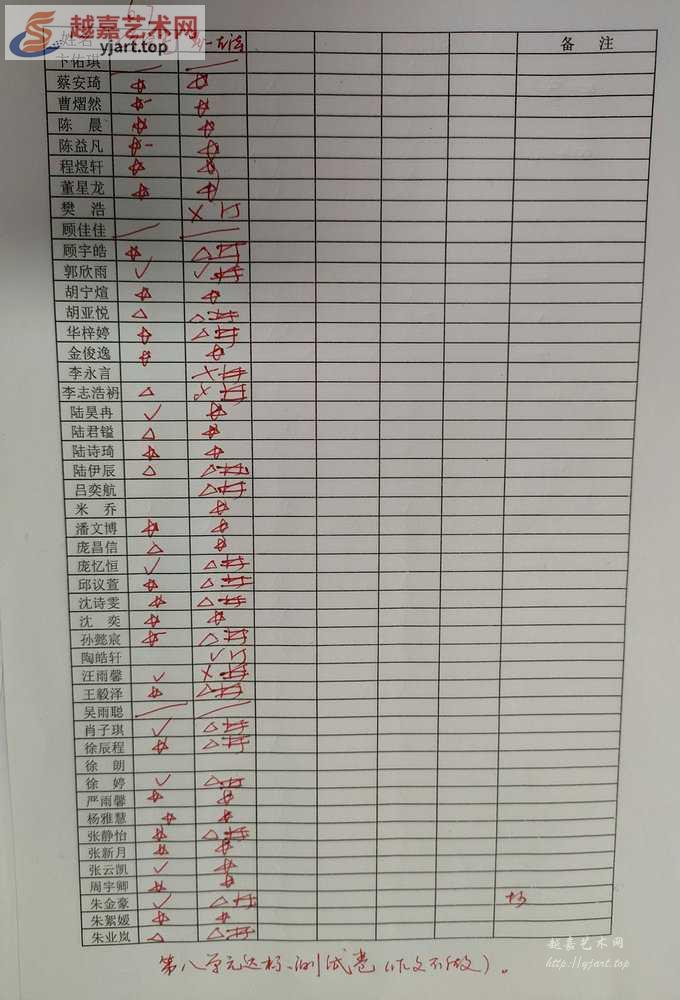 越嘉艺术网
yjart.top
姓名 备 注
卞佑琪
蔡安琦
曹熠然
陈 晨
陈益凡
程煜轩
董星龙
樊 浩 × 订
顾佳佳
顾宇皓 △ 订
郭欣雨 ✓ ✓ 订
胡宁煊
胡亚悦 △ △ 订
华梓婷 △ 订
金俊逸
李永言 × 订
李志浩 △ × 订
陆昊冉 ✓
陆君镒 △
陆诗琦
陆伊辰 △ △ 订
吕奕航 △ 订
米 乔
潘文博
庞昌信 △
庞忆恒 ✓ △ 订
邱议萱 △ 订
沈诗雯 △ 订
沈 奕
孙懿宸 △ 订
陶皓轩 ✓ 订
汪雨馨 ✓ × 订
王毅泽 △ 订
吴雨聪
肖子琪 ✓ △ 订
徐辰程 △ 订
徐 朗
徐 婷 ✓ △ 订
严雨馨
杨雅慧
张静怡 △ 订
张新月
张云凯 ✓
周宇卿
朱金豪 ✓ △ 订
朱絮媛
朱业岚 △ △ 订
第八单元达标测试卷(作文不做)。
越嘉艺术网
http://yjart.top